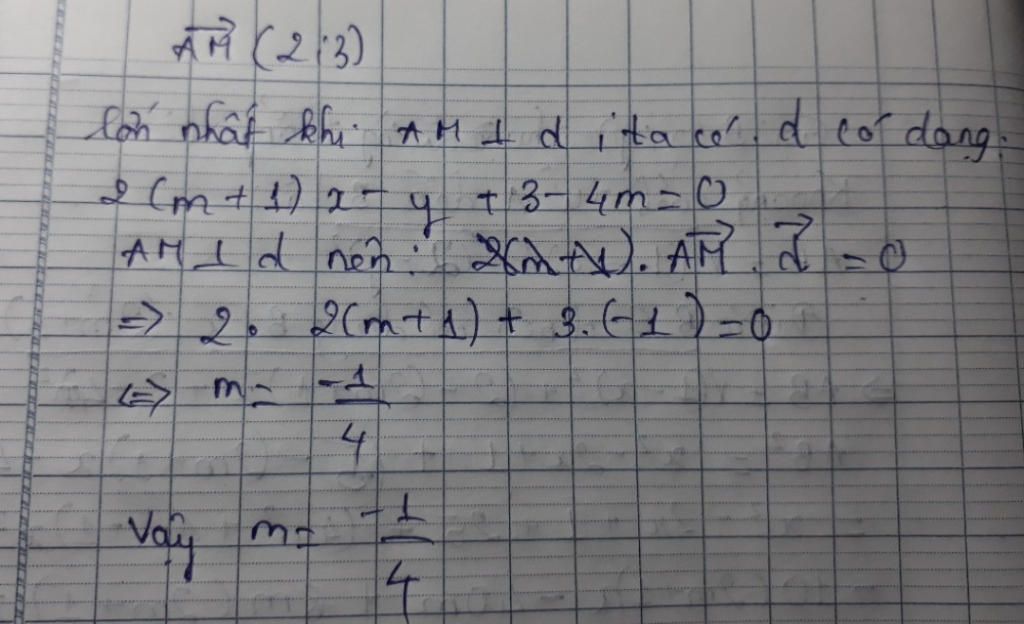 AM→ (2;3)
lớn nhất khi AM ⊥ d ; ta có d có dạng:
2(m+1)x - y + 3 - 4m = 0
AM ⊥ d nên: AM→ . d→ = 0
⇒ 2. 2(m+1) + 3.(-1) = 0
⇔ m = -1/4
Vậy m = -1/4